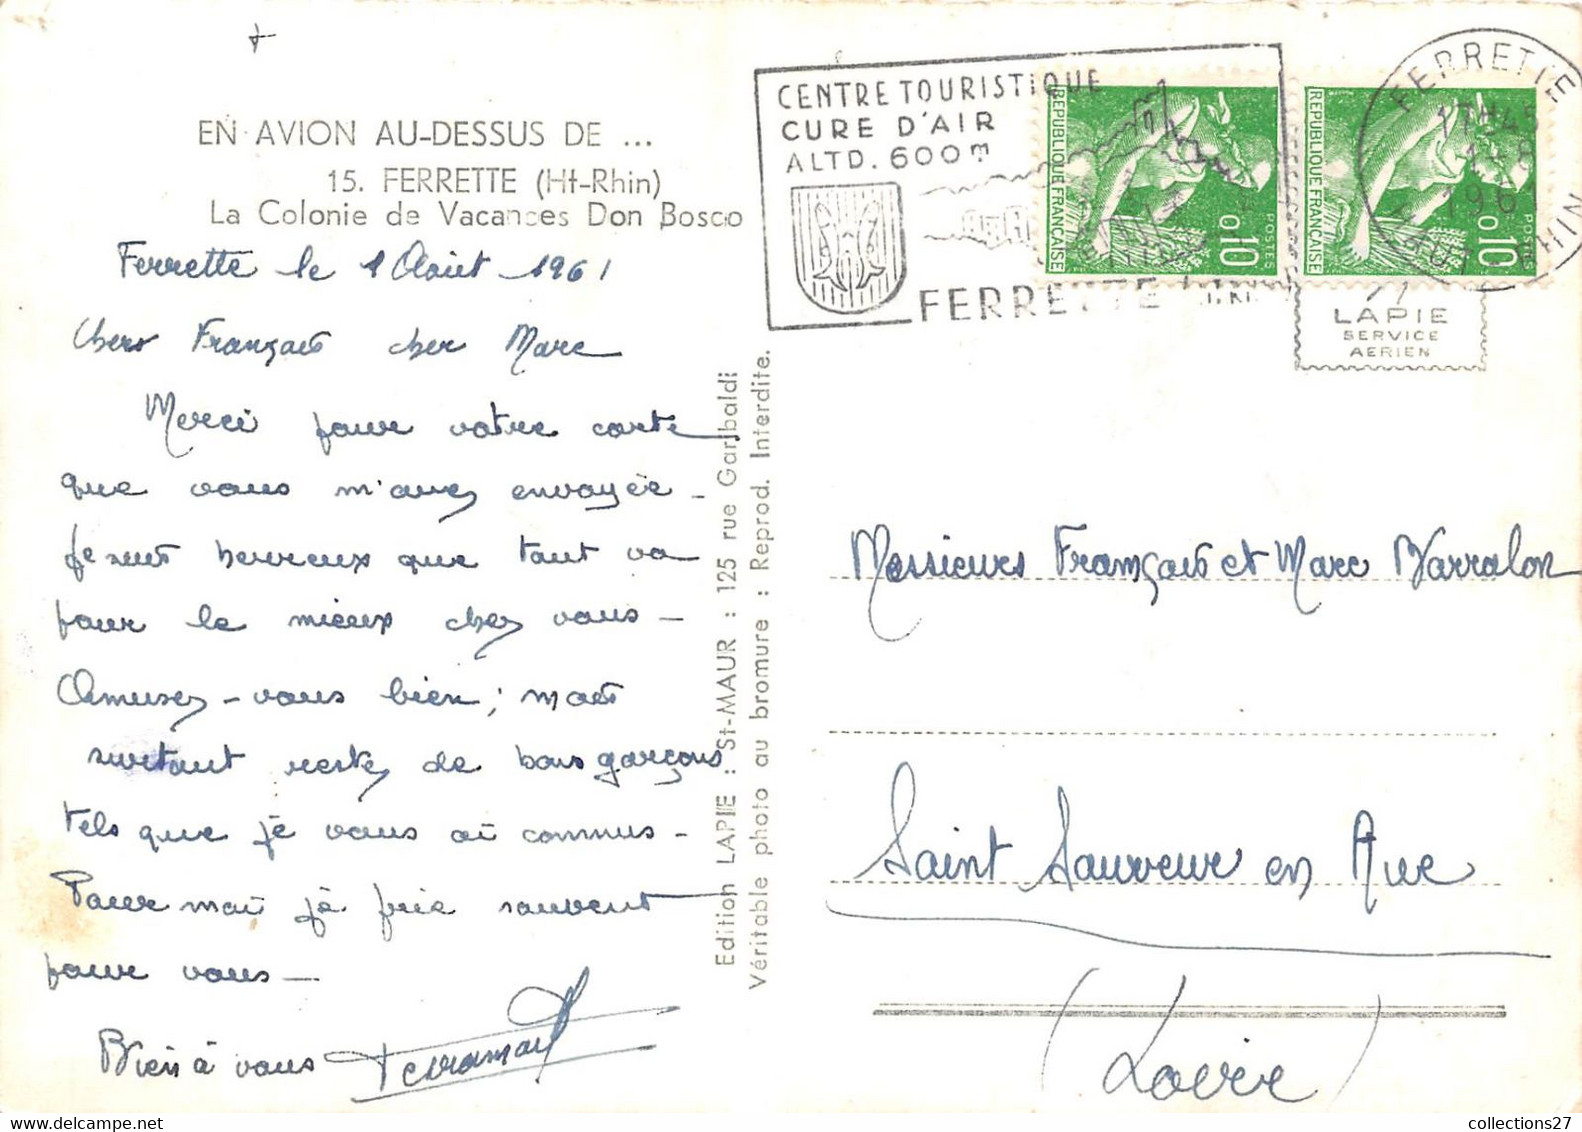 EN AVION AU-DESSUS DE ...
15. FERRETTE (Ht-Rhin)
La Colonie de Vacances Don Bosco
Ferrette le 1 Août 1961
Chers François cher Marc
Merci pour votre carte
que vous m'avez envoyée -
Je suis heureux que tout va
pour le mieux chez vous -
Amusez-vous bien ; mais
surtout restez de bons garçons
tels que je vous ai connus -
Pour moi je prie souvent
pour vous -
Bien à vous
Edition LAPIE : St-MAUR : 125 rue Garibaldi
Véritable photo au bromure : Reprod. Interdite.
CENTRE TOURISTIQUE
CURE D'AIR
ALTD. 600m
FERRETTE
REPUBLIQUE FRANÇAISE
0,10
POSTES
REPUBLIQUE FRANÇAISE
0,10
POSTES
FERRETTE
17H45
1961
HAUT-RHIN
LAPIE
SERVICE
AERIEN
Messieurs François et Marc Barralon
Saint Sauveur en Rue
(Loire)
collections27